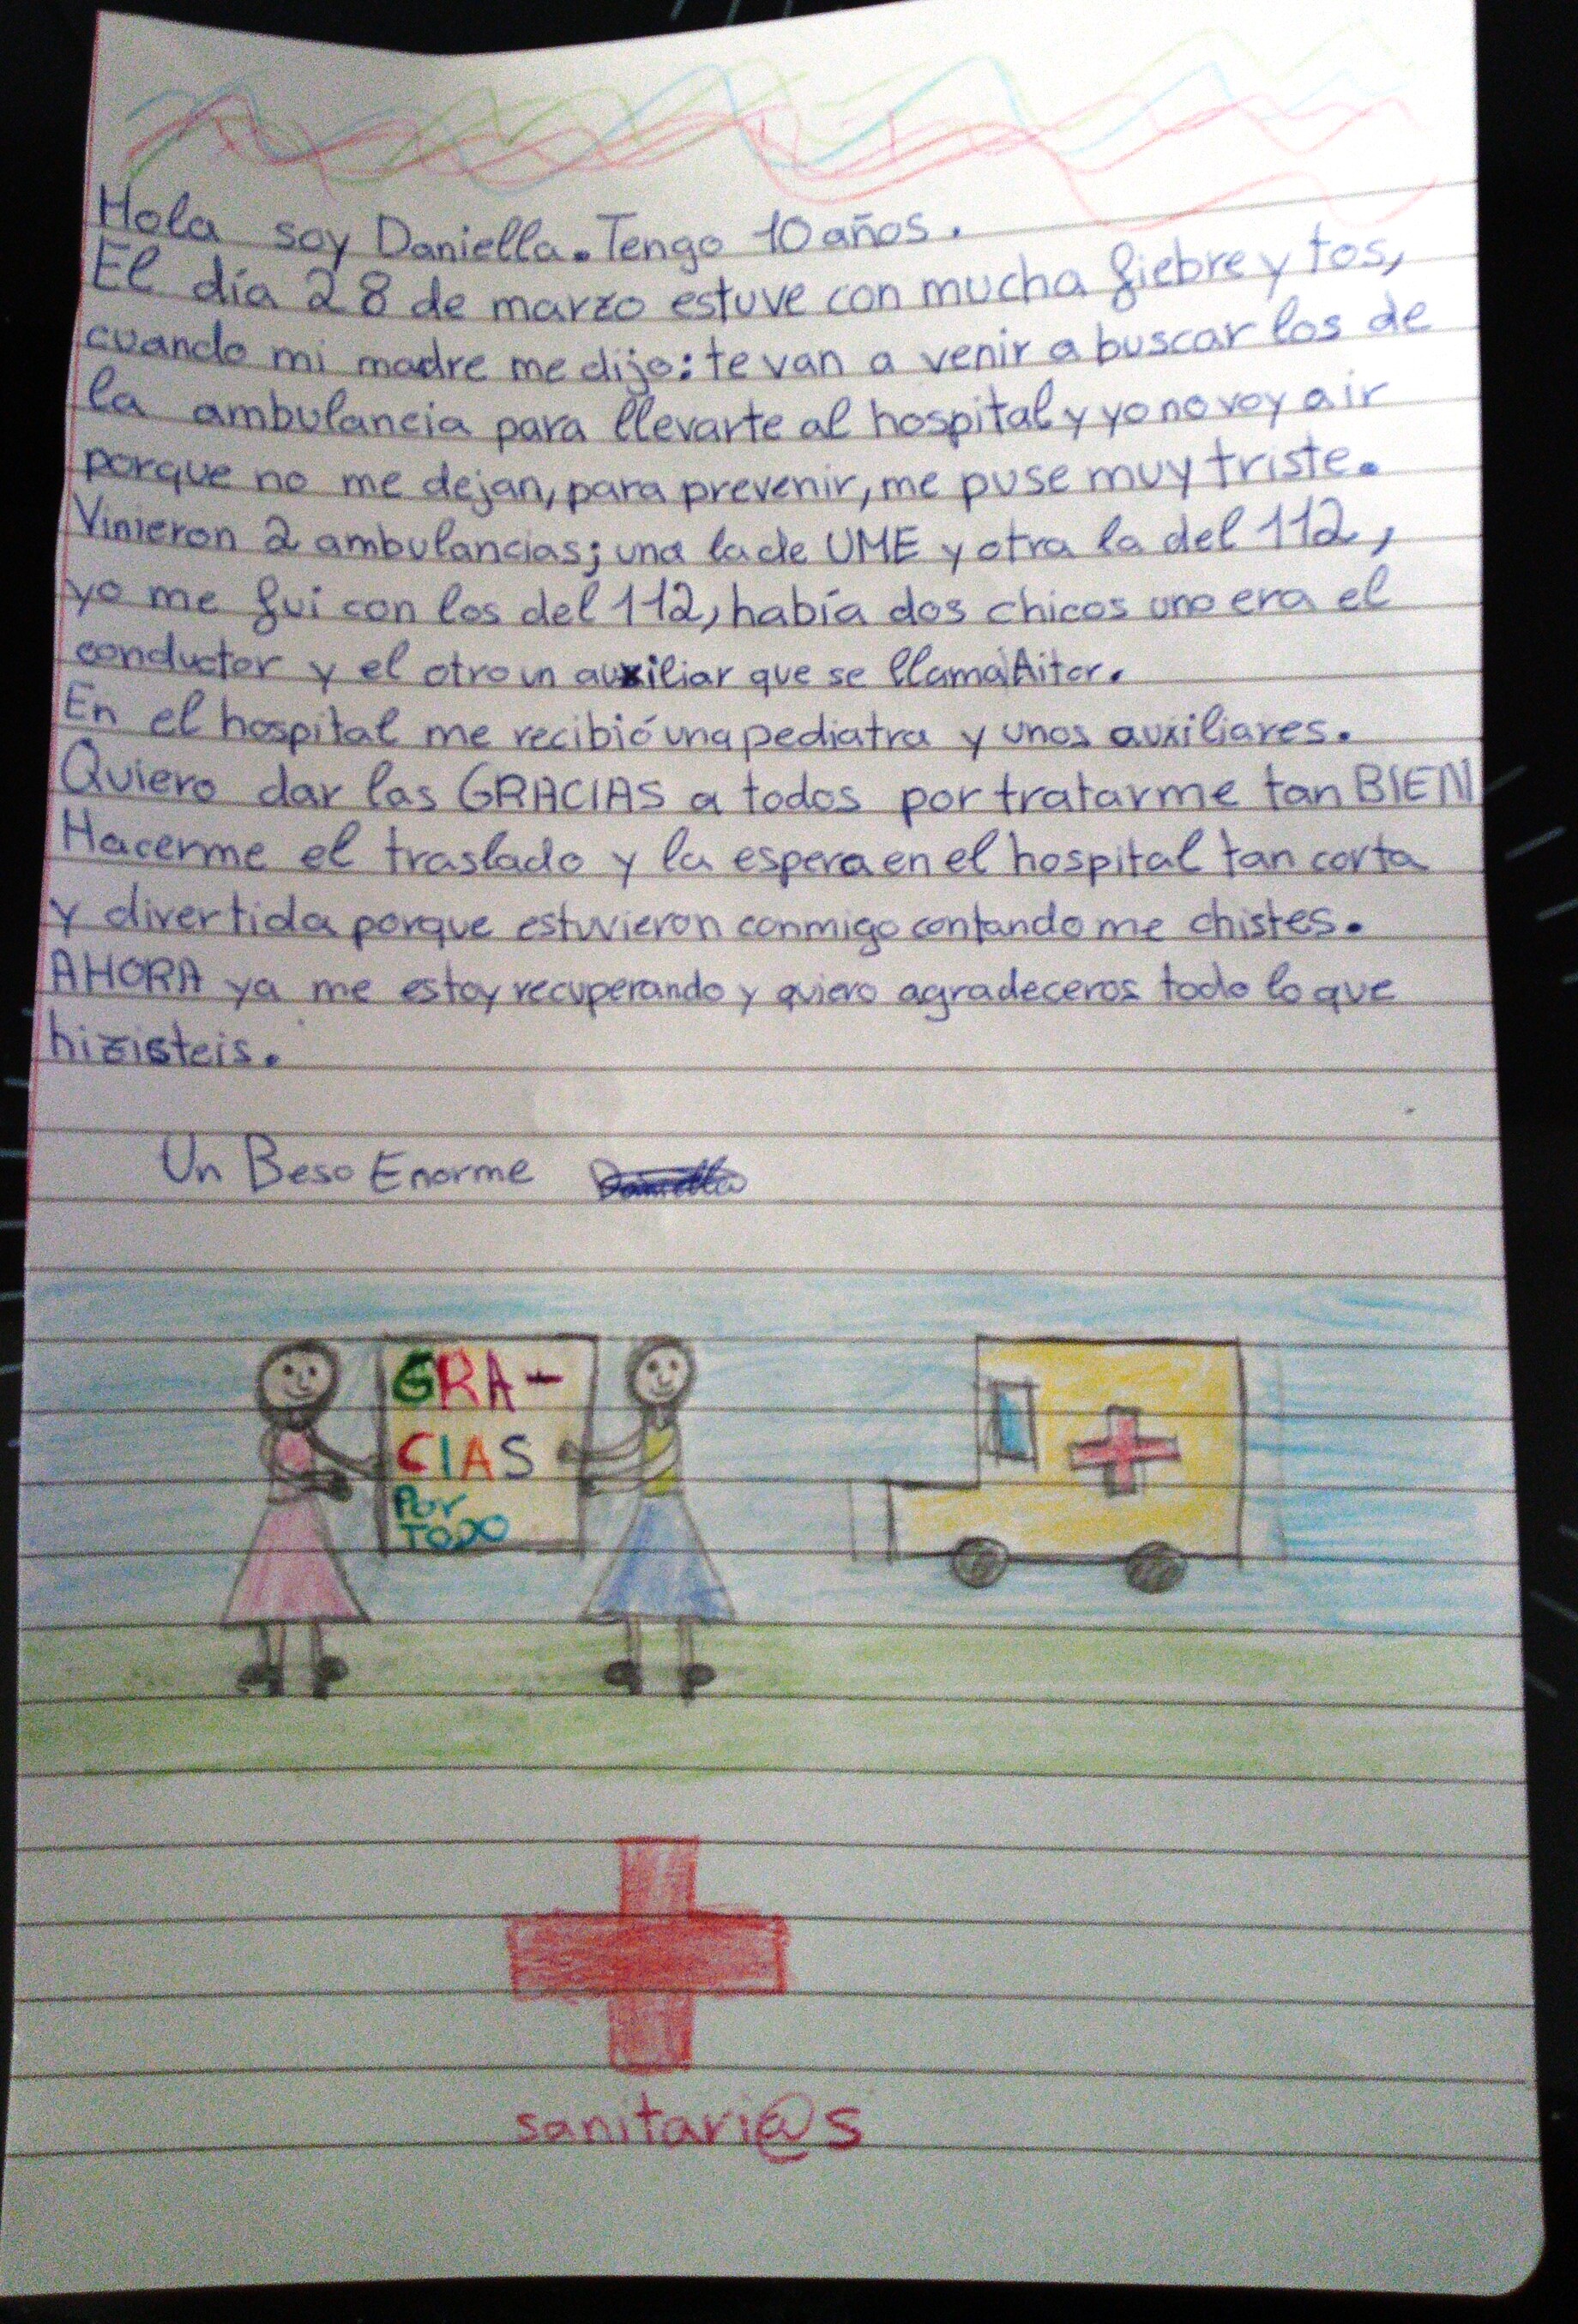 Hola soy Daniella. Tengo 10 años.
El día 28 de marzo estuve con mucha fiebre y tos,
cuando mi madre me dijo: te van a venir a buscar los de
la ambulancia para llevarte al hospital y yo no voy a ir
porque no me dejan, para prevenir, me puse muy triste.
Vinieron 2 ambulancias; una la de UME y otra la del 112,
yo me fui con los del 112, había dos chicos uno era el
conductor y el otro un auxiliar que se llama Aitor.
En el hospital me recibió una pediatra y unos auxiliares.
Quiero dar las GRACIAS a todos por tratarme tan BIEN
Hacerme el traslado y la espera en el hospital tan corta
y divertida porque estuvieron conmigo contando me chistes.
AHORA ya me estoy recuperando y quiero agradeceros todo lo que
hizisteis.
Un Beso Enorme Daniella
GRA-
CIAS
Por
TODO
sanitari@s